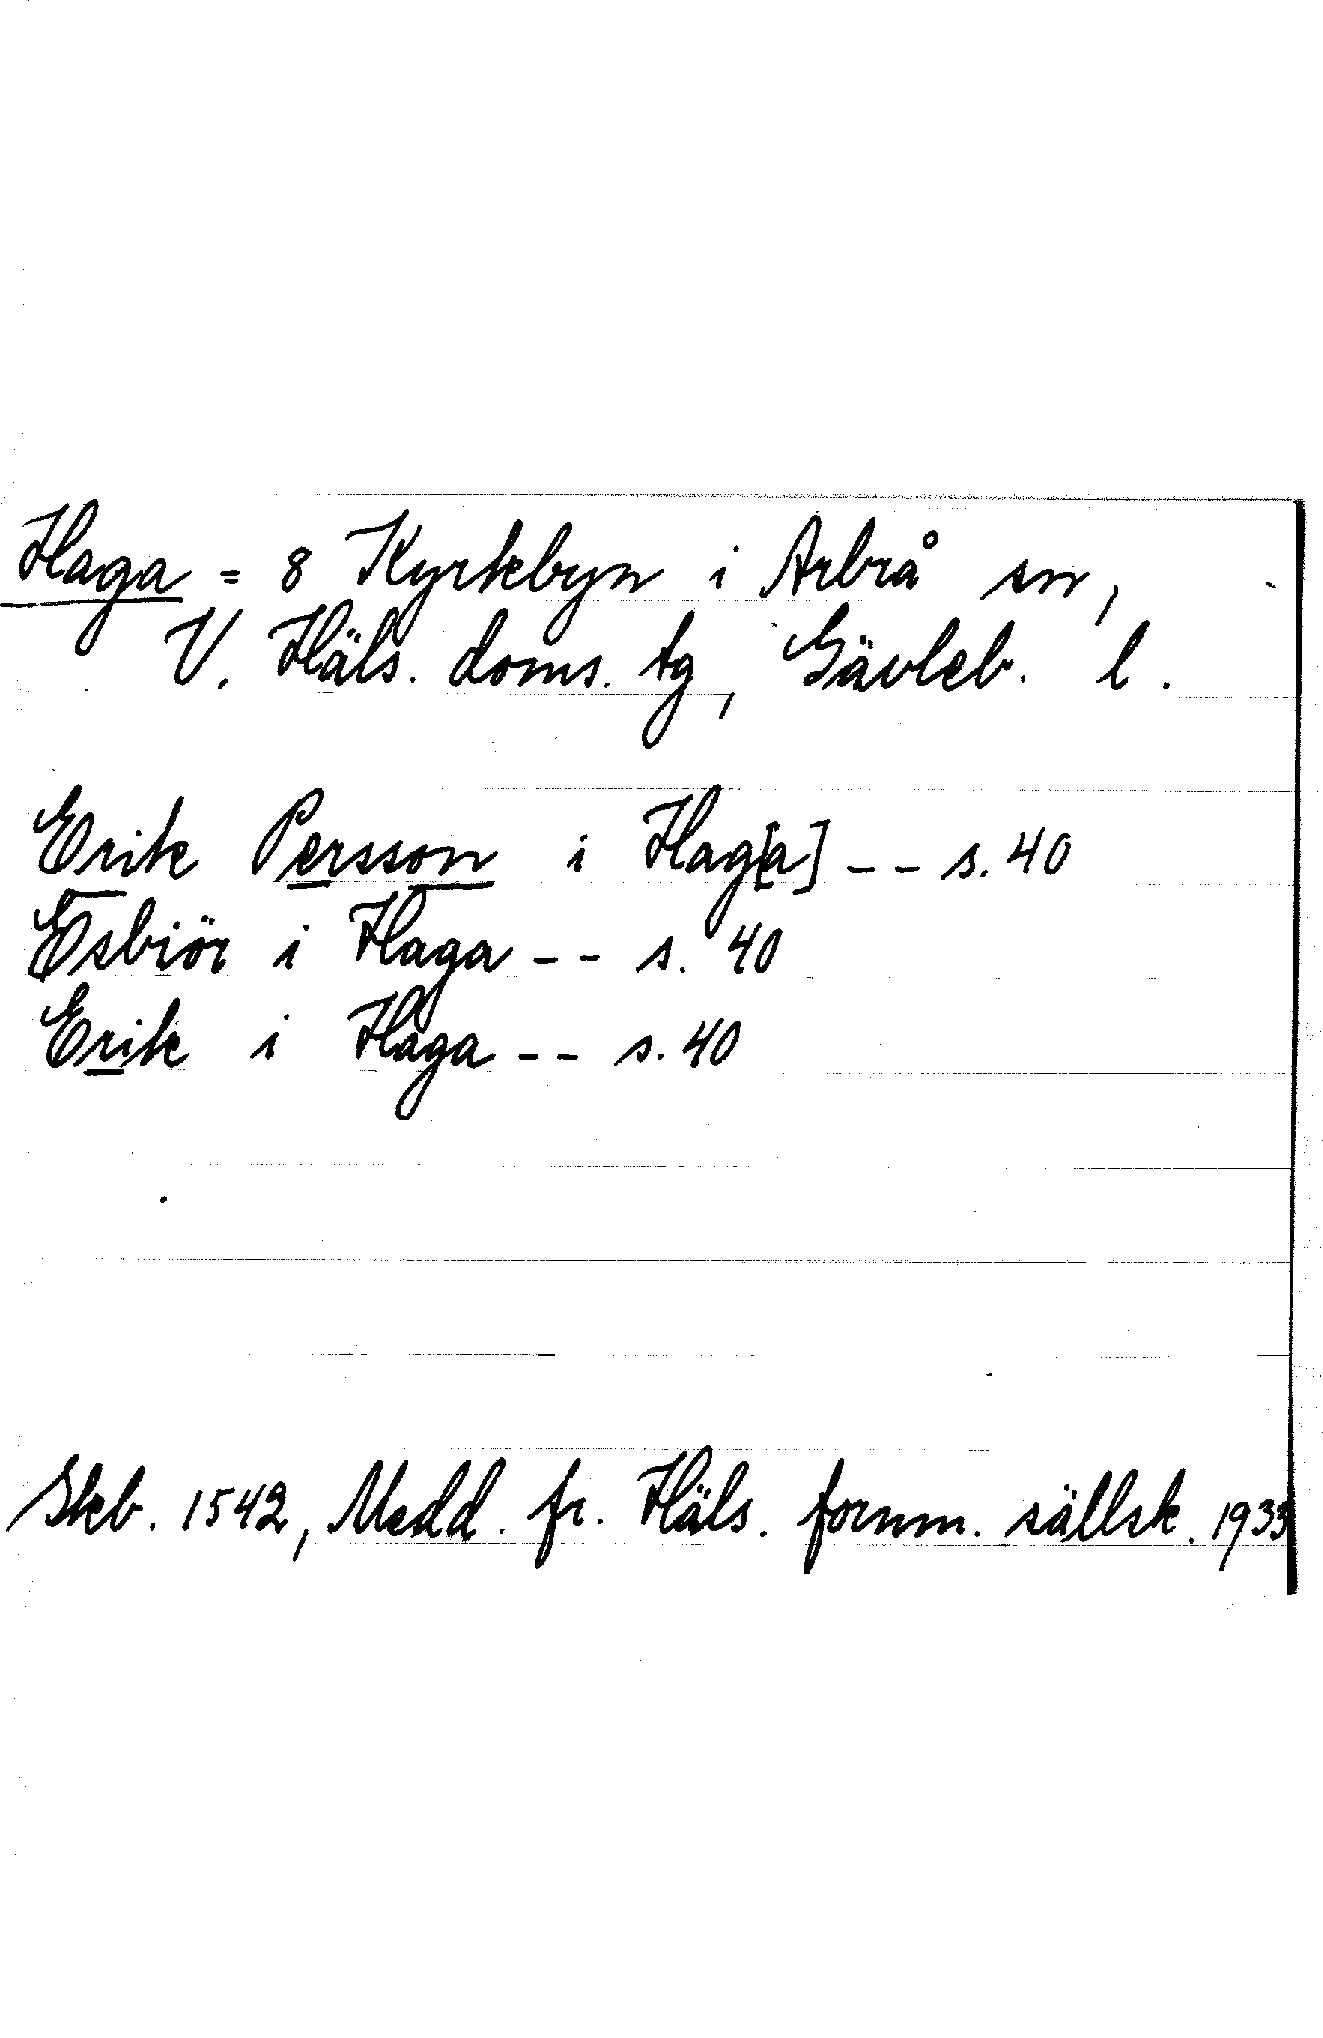 Haga = 8 Kyrkbyn i Arbrå sn,
V. Häls. doms. tg, Gävleb. l.
Erik Persson i Hag[a] -- s. 40
Esbiör i Haga -- s. 40
Erik i Haga -- s. 40
Skb. 1542, Medd. fr. Häls. fornm. sällsk. 1933